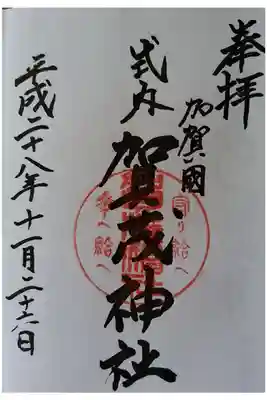 奉拝
加賀國
式内
加賀茂神社
守り給へ
幸へ給へ
平成二十八年十一月二十六日